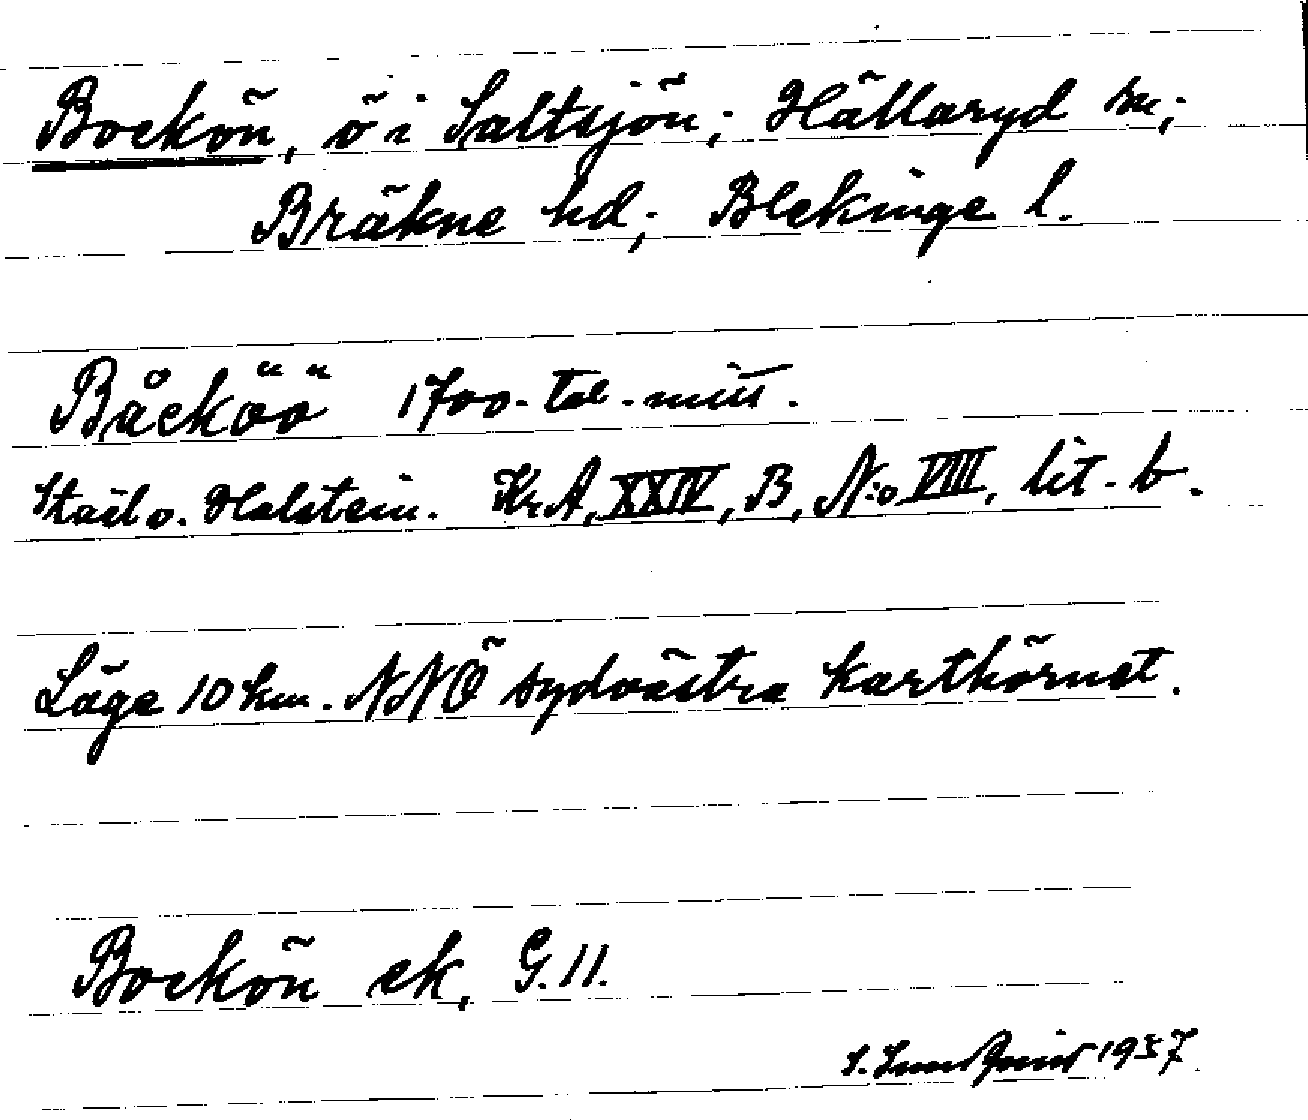 Bockön, ö i Saltsjön; Hällaryd sn;
Bräkne hd; Blekinge l.
Båcköö 1700-tal-mitt.
Staël v. Holstein. Kr A, XXIV, B, N:o VIII, lit. b.
Läge 10 km. NNÖ sydvästra karthörnet.
Bockön ek, G. 11.
1957